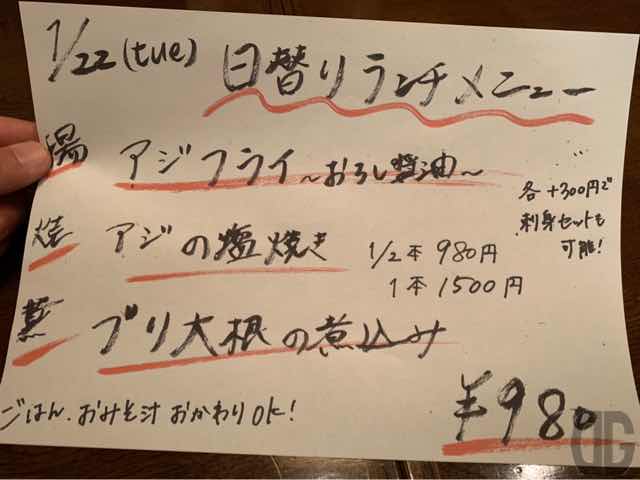 1/22(tue) 日替りランチメニュー
揚 アジフライ～おろし醤油～
各 +300円で
刺身セットも
可能!
焼 アジの塩焼き 1/2本 980円
1本 1500円
煮 ブリ大根の煮込み
ごはん、おみそ汁 おかわりOK!
¥980
DG